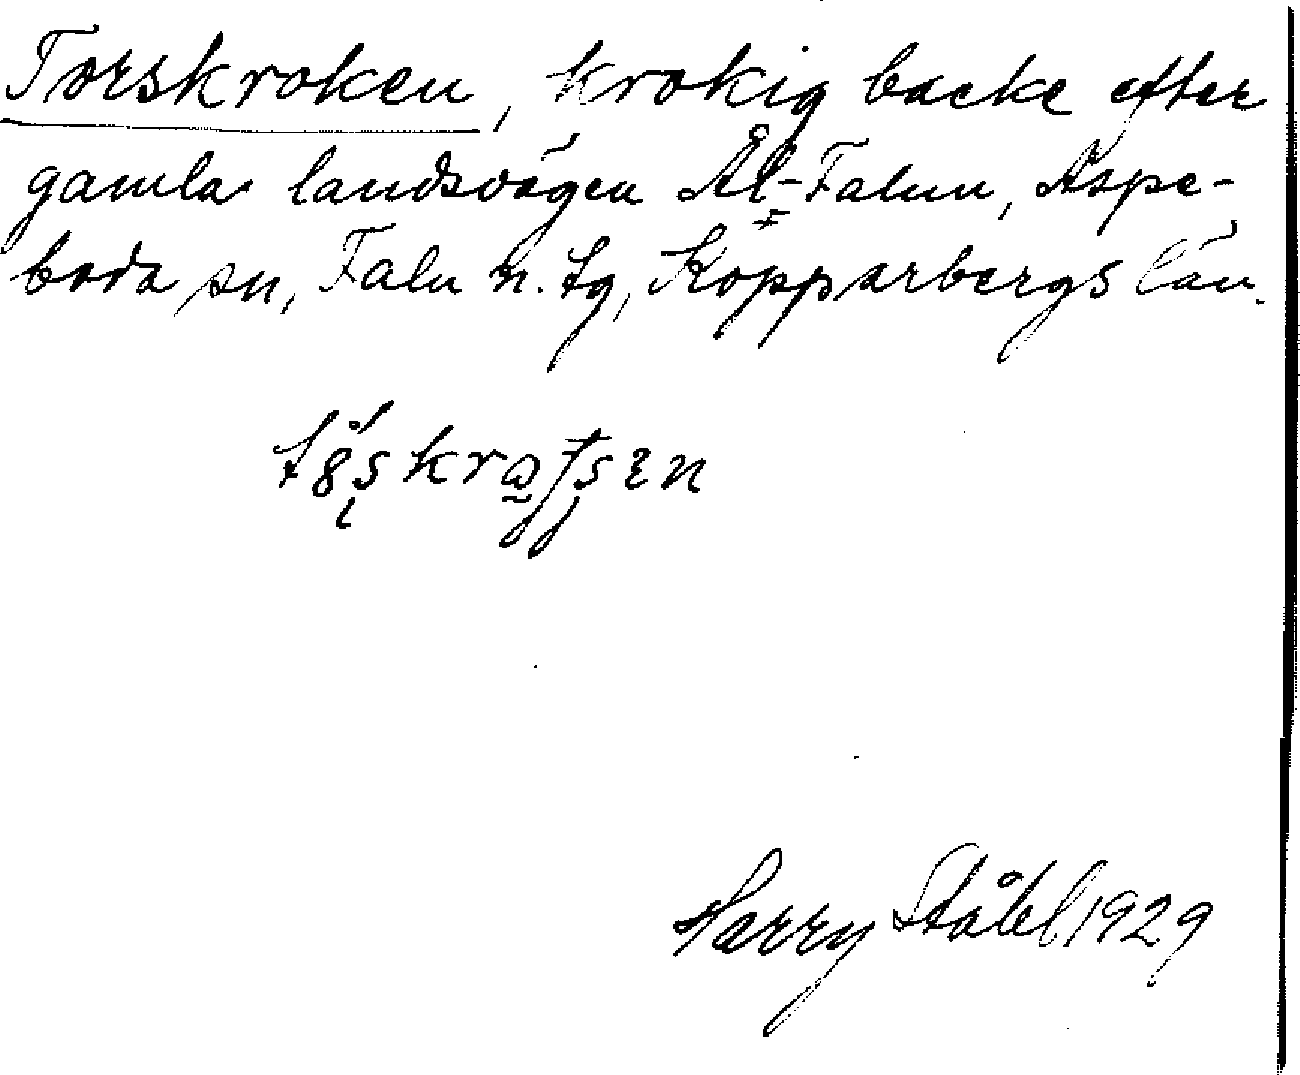 Torskroken, krokig backe efter
gamla landsvägen Ål-Falun, Aspe-
boda sn, Falu n. tg, Kopparbergs län.
Harry Ståhl 1929